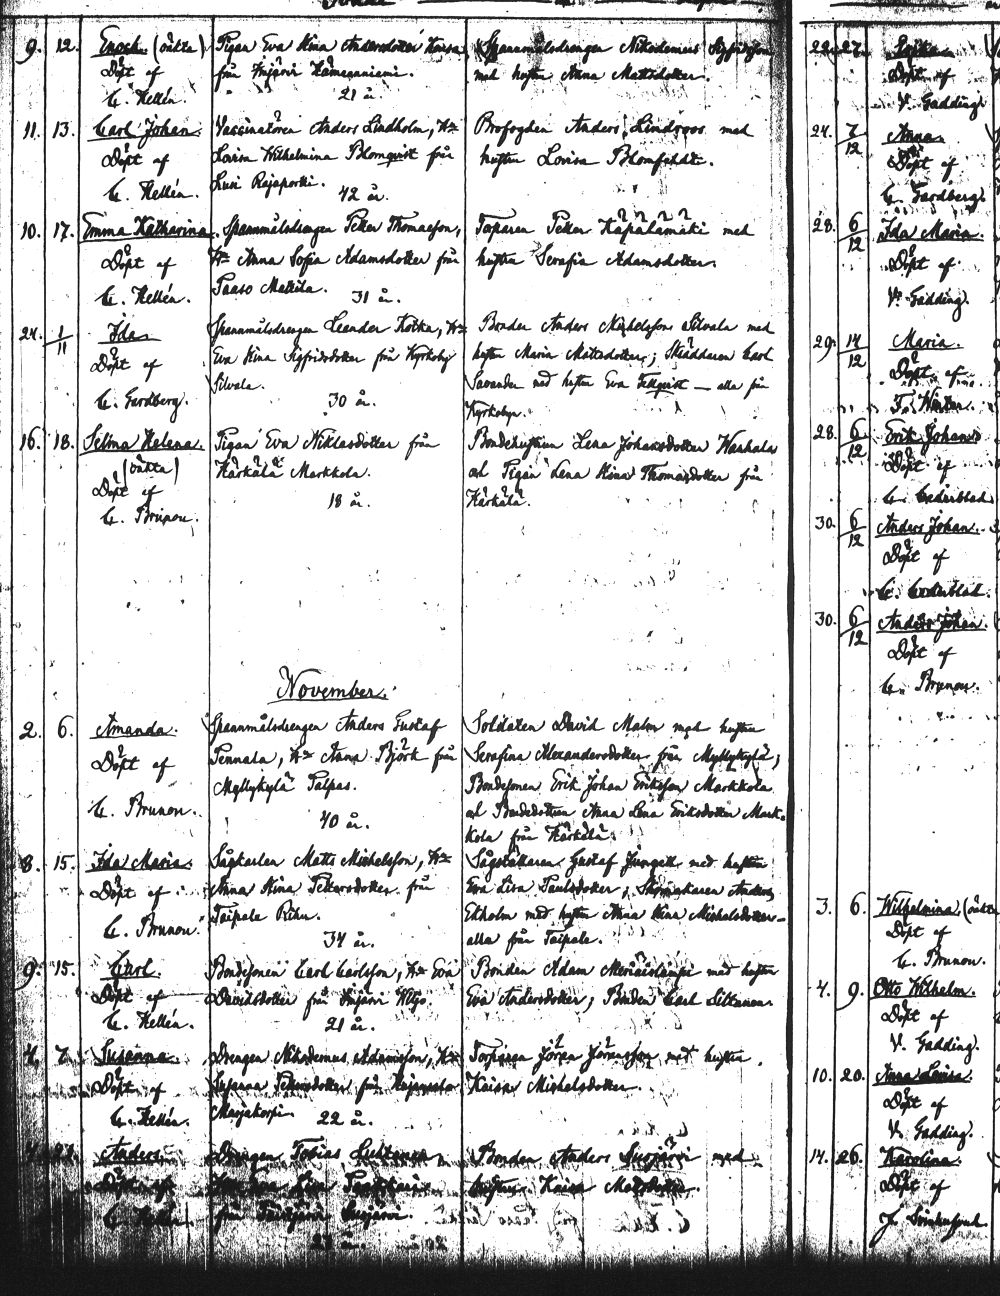 9. 12. Enoch (oäkta)
Döpt af
C. Hellén.
Pigan Eva Stina Andersdotter Kansa
från
21 år.
Spannmålsdrengen Nikodemus Sigfridsson
med hustru Anna Mattsdotter.
11. 13. Carl Johan.
Döpt af
C. Hellén.
Vaccinatören Anders Lindholm, H:u
Lovisa Wilhelmina Blomqvist från
Rajaportti.
42 år.
Brofogden Anders Lindroos med
hustru Lovisa
10. 17. Emma Katharina.
Döpt af
C. Hellén.
Spannmålsdrengen Petter Thomasson,
H:u Anna Sofia Adamsdotter från
Paaso Mattila.
31 år.
Torparen Petter Käpälämäki med
hustru Serafia Adamsdotter.
24. 1/11 Ida
Döpt af
C. Gardberg.
Spannmålsdrengen Leander Kotka, H:u
Eva Stina Sigfridsdotter från Kyrkoby
Silvala.
30 år.
Bonden Anders Michelsson Silvala med
hustru Maria Mattsdotter; Skräddaren Carl
Savander med hustru Eva Fellqvist — alla från
Kyrkobyn.
16. 18. Selma Helena.
(oäkta)
Döpt af
C. Brunou.
Pigan Eva Niklasdotter från
Kärkälä Markkola.
18 år.
Bondehustrun Lena Johansdotter Wanhala
och Pigan Lena Stina Thomasdotter från
Kärkälä.
November.
2. 6. Amanda.
Döpt af
C. Brunou.
Spannmålsdrengen Anders Gustaf
Pennala, H:u Anna Björk från
Myllykylä Talpas.
40 år.
Soldaten David Malm med hustru
Serafina Alexandersdotter från Myllykylä;
Bondesonen Erik Johan Eriksson Markkola
och Bondedottren Anna Lena Eriksdotter Mark-
kola från Kärkälä.
8. 15. Ida Maria.
Döpt af
C. Brunou.
Sågkarlen Matts Michelsson, H:u
Anna Stina Pettersdotter från
Taipale Rihu.
34 år.
Sågställaren Gustaf Ljungell med hustru
Eva Lisa Paulsdotter; Skomakaren Anders
Ekholm med hustru Anna Stina Michelsdotter —
alla från Taipale.
9. 15. Carl.
Döpt af
C. Hellén.
Bondesonen Carl Carlsson, H:u Eva
Davidsdotter från
21 år.
Bonden Adam med hustru
Eva Andersdotter; Bonden Carl Siltanen
4. 7. Susanna
Döpt af
C. Hellén.
Drengen Nikodemus Adamsson, H:u
Susanna Pettersdotter från
Marjakorpi.
22 år.
Torparen Jöran Jöransson med hustru
Kaisa Michelsdotter.
Anders.
Döpt af
C. Hellén
Drengen Tobias
från
23 år.
Bonden Anders med
hustru Kaisa Mattsdotter.
22. 27.
Döpt af
V. Gadding.
24. 7/12 Anna.
Döpt af
C. Gardberg.
28. 6/12 Ida Maria.
Döpt af
V. Gadding.
29. 14/12 Maria.
Döpt af
F. Winter.
28. 6/12 Erik Johan
Döpt af
C. Cederblad.
30. 6/12 Anders Johan.
Döpt af
C. Cederblad.
30. 6/12 Anders Johan.
Döpt af
C. Brunou.
3. 6. Wilhelmina. (oäkta
Döpt af
C. Brunou.
4. 9. Otto Wilhelm.
Döpt af
V. Gadding.
10. 20. Anna Lovisa.
Döpt af
V. Gadding.
14. 26. Karolina.
Döpt af